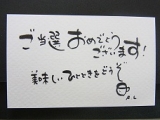 ご当選おめでとう
ございます!
美味しいひとときをどうぞ